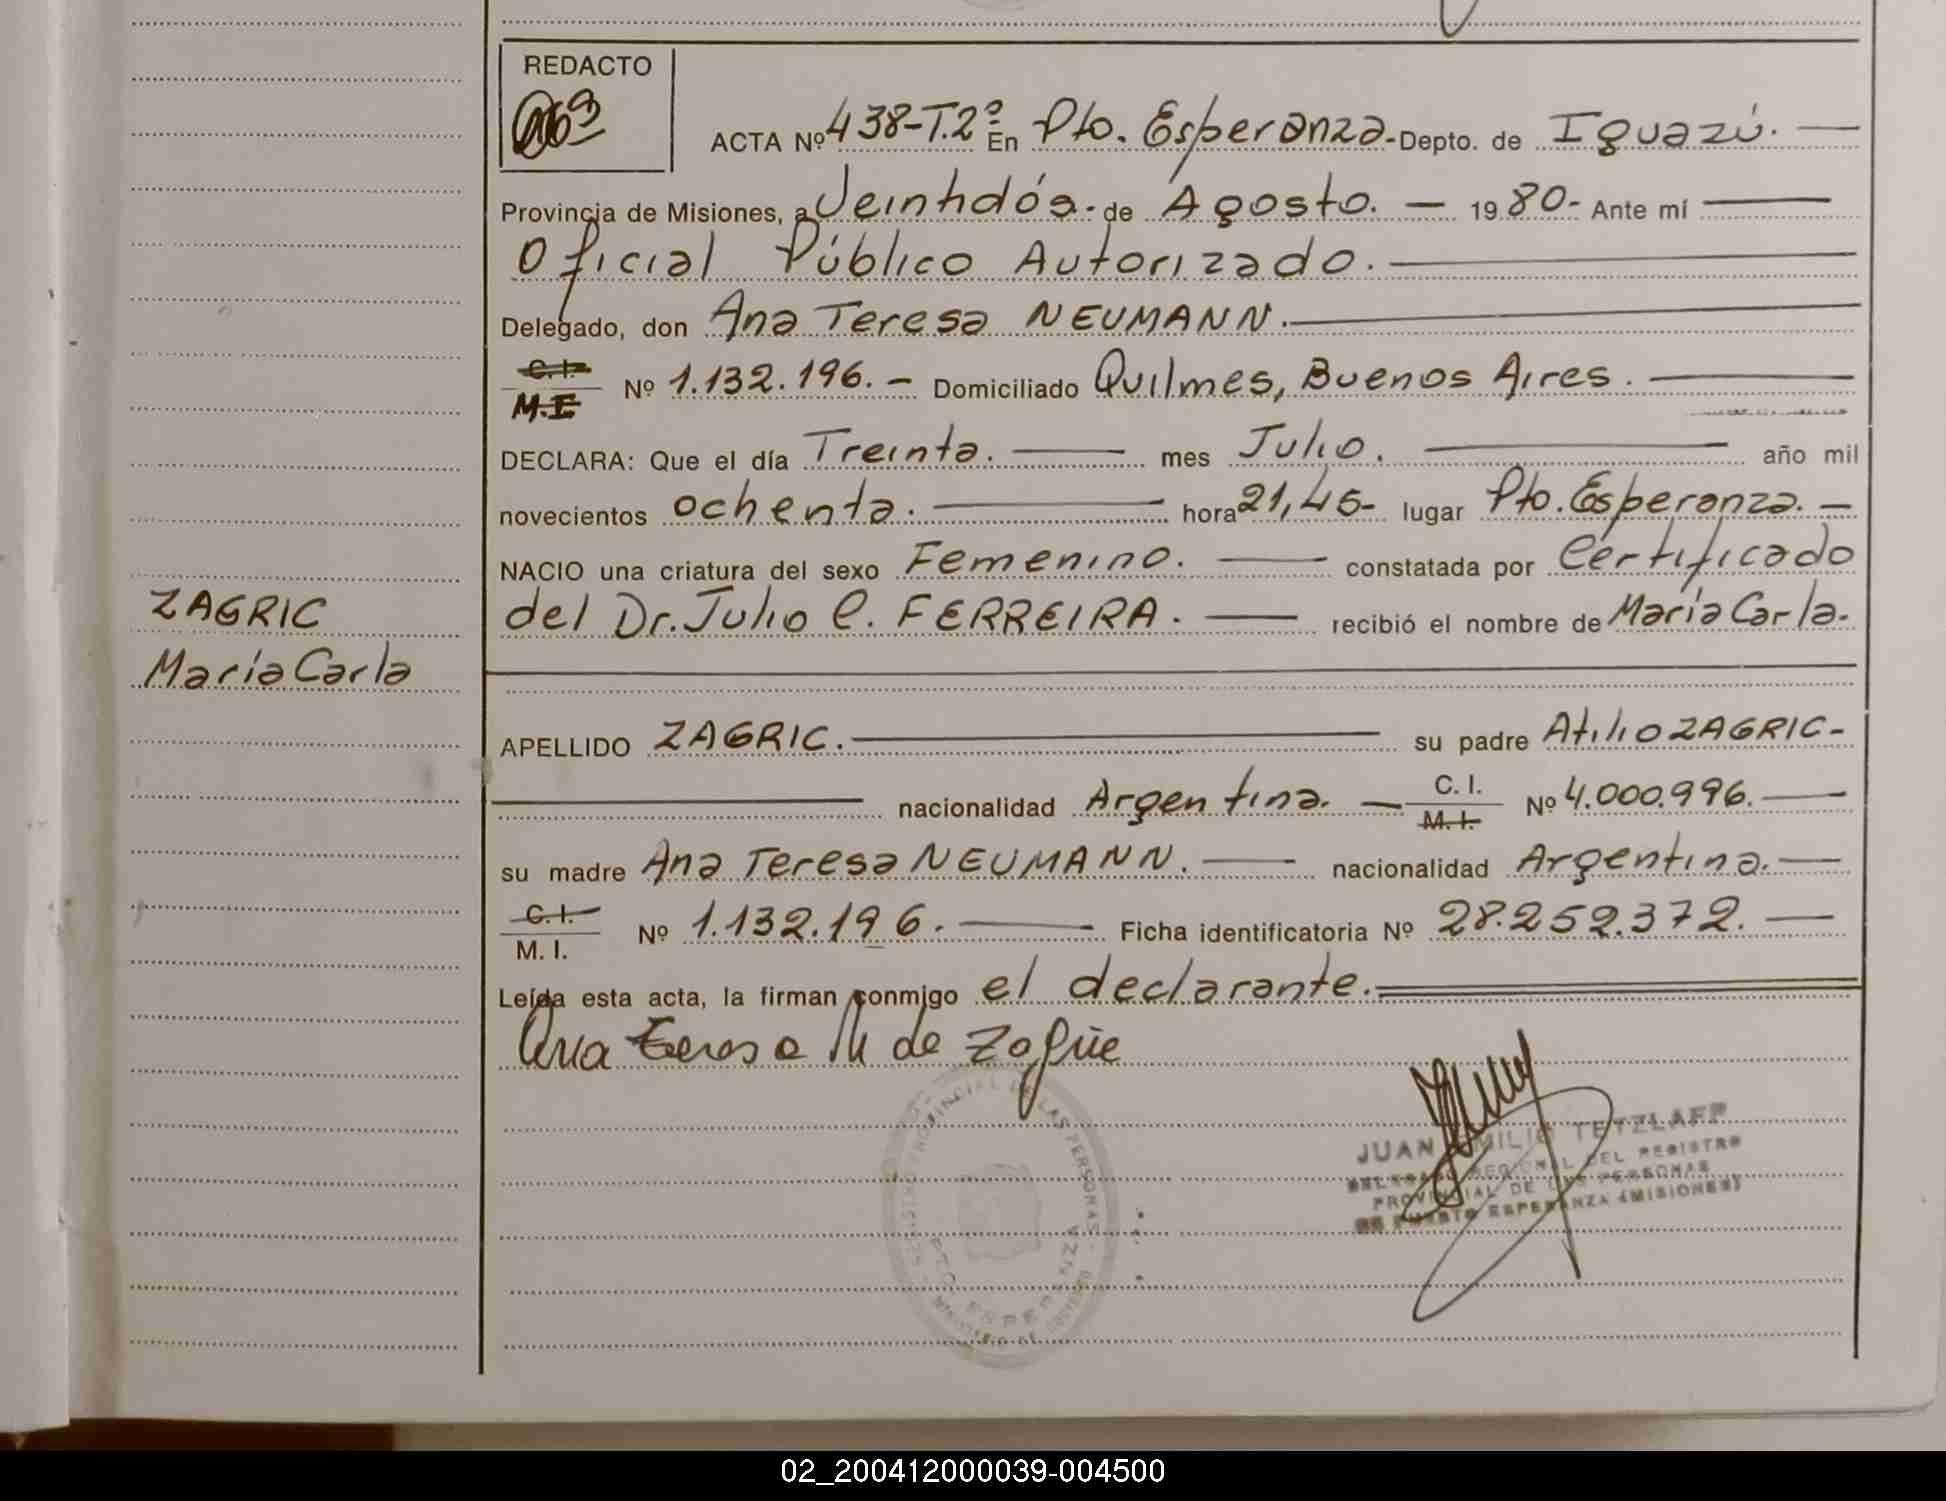 REDACTO
ACTA Nº 438-T.2º En Pto. Esperanza.- Depto. de Iguazú. —
Provincia de Misiones, a Veintidós.- de Agosto. — 1980.- Ante mí —
Oficial Público Autorizado. —
Delegado, don Ana Teresa NEUMANN. —
C.I.
M.I. Nº 1.132.196. — Domiciliado Quilmes, Buenos Aires. —
DECLARA: Que el día Treinta. — mes Julio. — año mil
novecientos ochenta. — hora 21,45- lugar Pto. Esperanza. —
NACIO una criatura del sexo Femenino. — constatada por Certificado
del Dr. Julio C. FERREIRA. — recibió el nombre de María Carla.
ZAGRIC
María Carla
APELLIDO ZAGRIC. — su padre Atilio ZAGRIC-
— nacionalidad Argentina. — C. I.
M. I. Nº 4.000.996. —
su madre Ana Teresa NEUMANN. — nacionalidad Argentina. —
C. I.
M. I. Nº 1.132.196. — Ficha identificatoria Nº 28.252.372. —
Leída esta acta, la firman conmigo el declarante.
Ana Teresa N de
REGISTRO PROVINCIAL DE LAS PERSONAS
PTO ESPERANZA
MINISTERIO DE GOBIERNO
JUAN EMILIO TETZLAFF
DELEGADO REGIONAL DEL REGISTRO
PROVINCIAL DE LAS PERSONAS
DE PUERTO ESPERANZA (MISIONES)
02_200412000039-004500